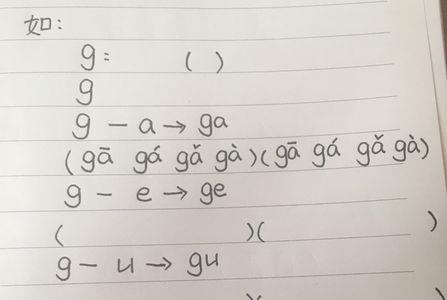 如:
g: ( )
g
g - a → ga
(gā gá gǎ gà)(gā gá gǎ gà)
g - e → ge
( )( )
g - u → gu